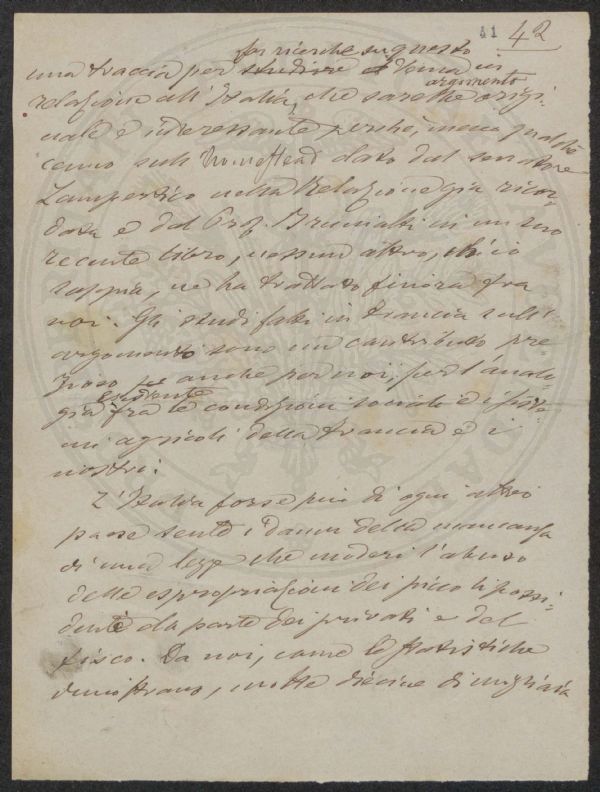 41 42
far ricerche su questo
una traccia per studiare il tema in
argomento
relazione all'Italia, che sarebbe origi
nale e interessante perchè, meno qualche
cenno sull' HomeStead dato dal senatore
Lampertico nella Relazione già ricor
data e dal Prof. Brunialti in un suo
recente libro, nessun altro, ch'io
sappia, ne ha trattato finora fra
noi. Gli studi fatti in Francia sull'
argomento sono un contributo pre
zioso anche per noi, per l'analo
esistente
gia fra le condizioni sociali e i
agricoli della Francia e i
nostri.
L'Italia forse più di ogni altro
paese sente i danni della mancanza
di una legge che moderi l'abuso
delle espropriazioni dei piccoli possi
denti da parte dei privati e del
fisco. Da noi, come le statistiche
dimostrano, molte diecine di migliaia